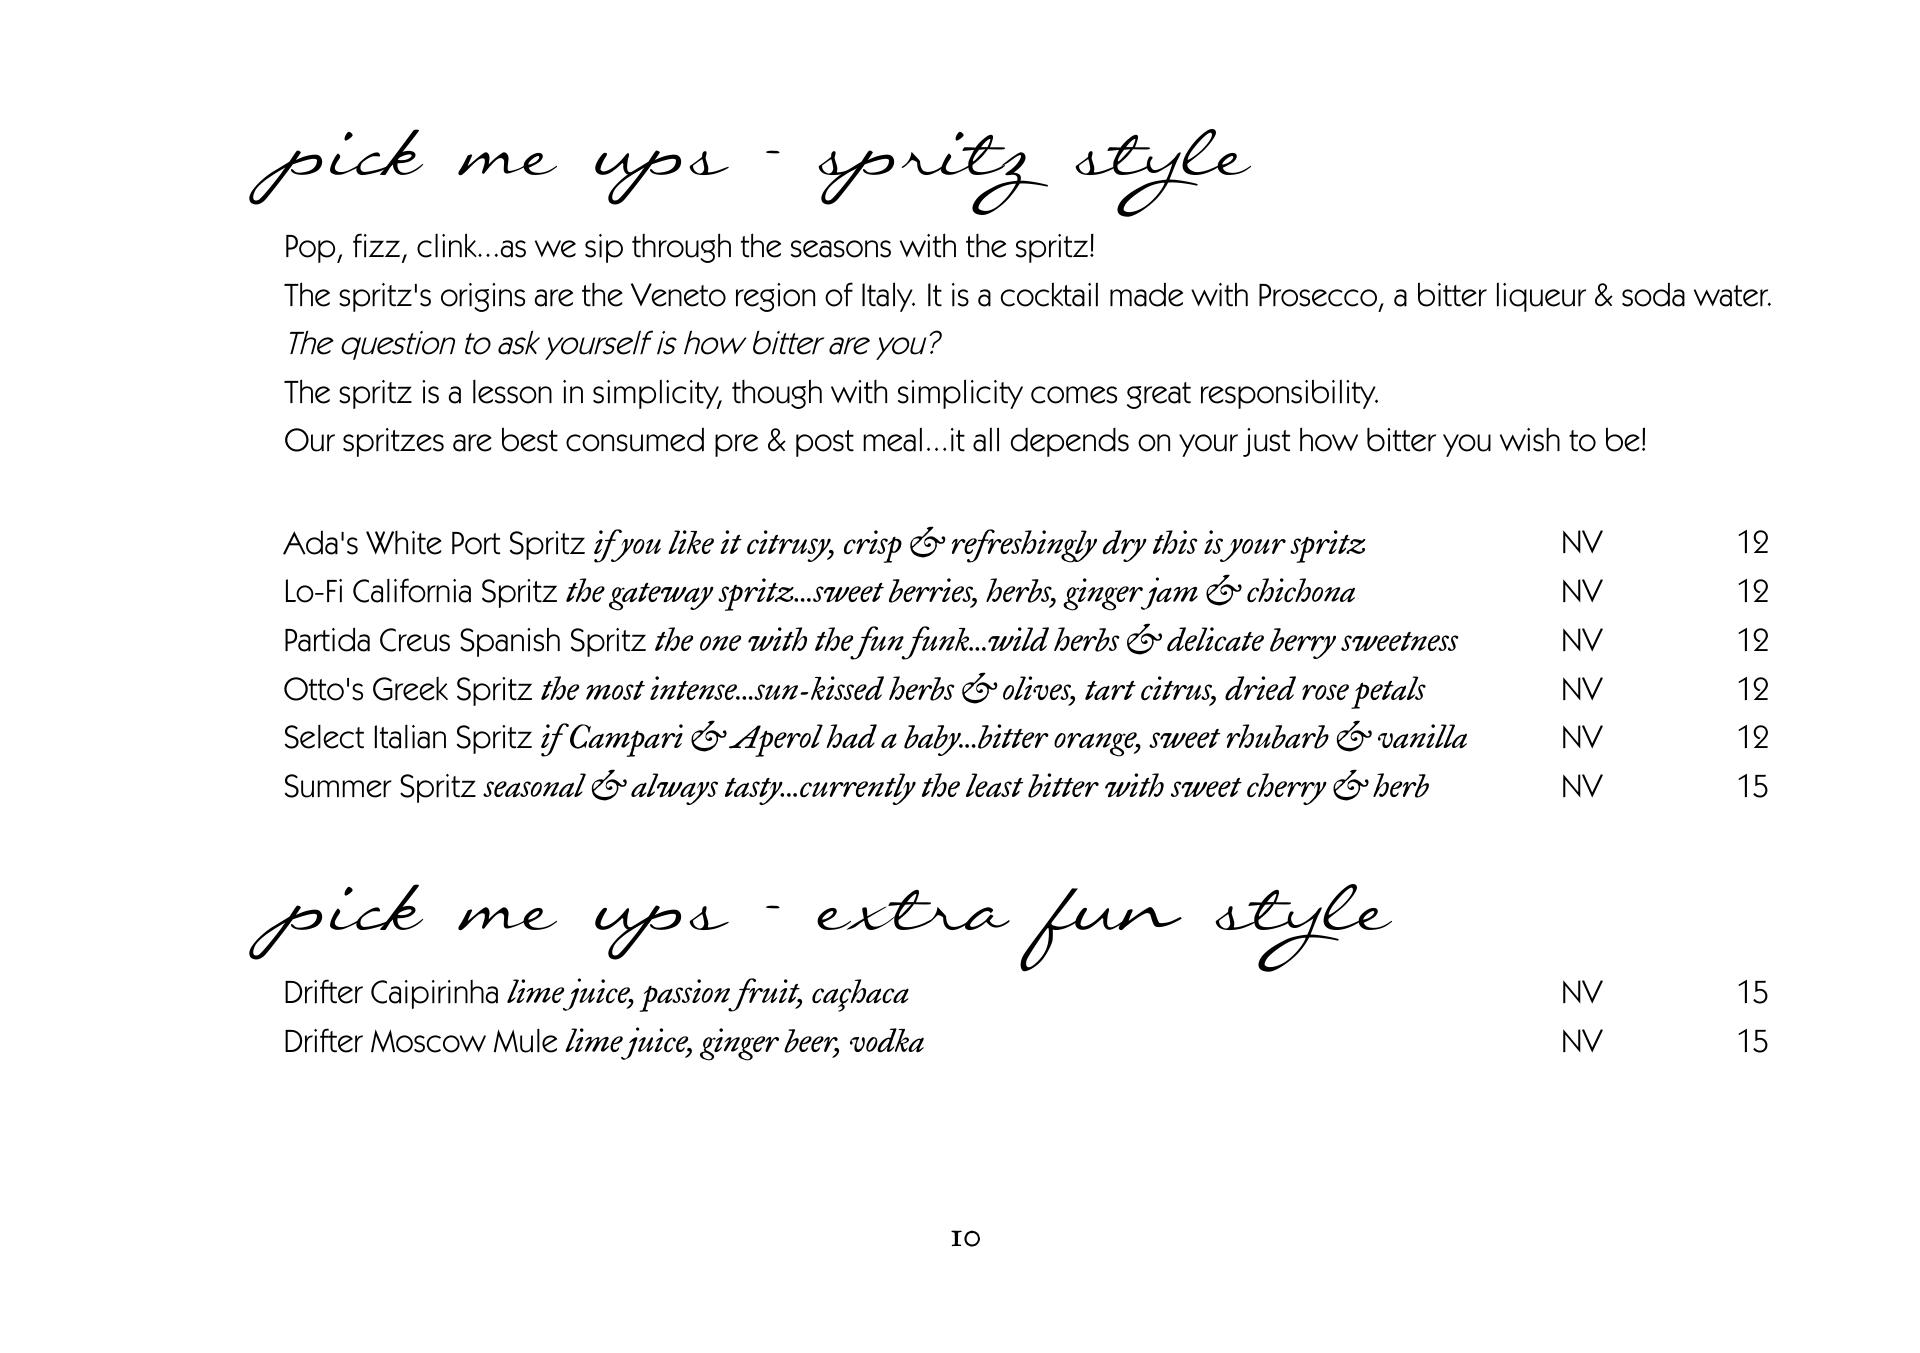 pick me ups - spritz style
Pop, fizz, clink...as we sip through the seasons with the spritz!
The spritz's origins are the Veneto region of Italy. It is a cocktail made with Prosecco, a bitter liqueur & soda water.
The question to ask yourself is how bitter are you?
The spritz is a lesson in simplicity, though with simplicity comes great responsibility.
Our spritzes are best consumed pre & post meal...it all depends on your just how bitter you wish to be!
Ada's White Port Spritz if you like it citrusy, crisp & refreshingly dry this is your spritz NV 12
Lo-Fi California Spritz the gateway spritz...sweet berries, herbs, ginger jam & chichona NV 12
Partida Creus Spanish Spritz the one with the fun funk...wild herbs & delicate berry sweetness NV 12
Otto's Greek Spritz the most intense...sun-kissed herbs & olives, tart citrus, dried rose petals NV 12
Select Italian Spritz if Campari & Aperol had a baby...bitter orange, sweet rhubarb & vanilla NV 12
Summer Spritz seasonal & always tasty...currently the least bitter with sweet cherry & herb NV 15
pick me ups - extra fun style
Drifter Caipirinha lime juice, passion fruit, caçhaca NV 15
Drifter Moscow Mule lime juice, ginger beer, vodka NV 15
10